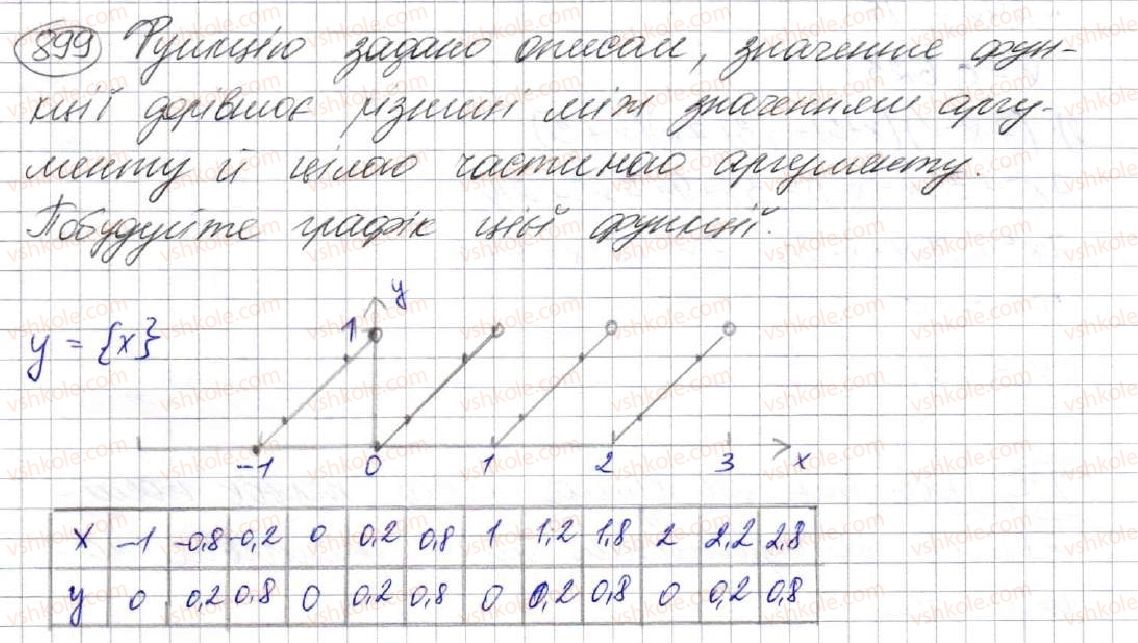 899 Функцію задано описом, значення фун-
кції дорівнює різниці між значенням аргу-
менту й цілою частиною аргументу.
Побудуйте графік цієї функції.
y = {x}
y
1
-1 0 1 2 3 x
x -1 -0,8 -0,2 0 0,2 0,8 1 1,2 1,8 2 2,2 2,8
y 0 0,2 0,8 0 0,2 0,8 0 0,2 0,8 0 0,2 0,8
vshkole.com